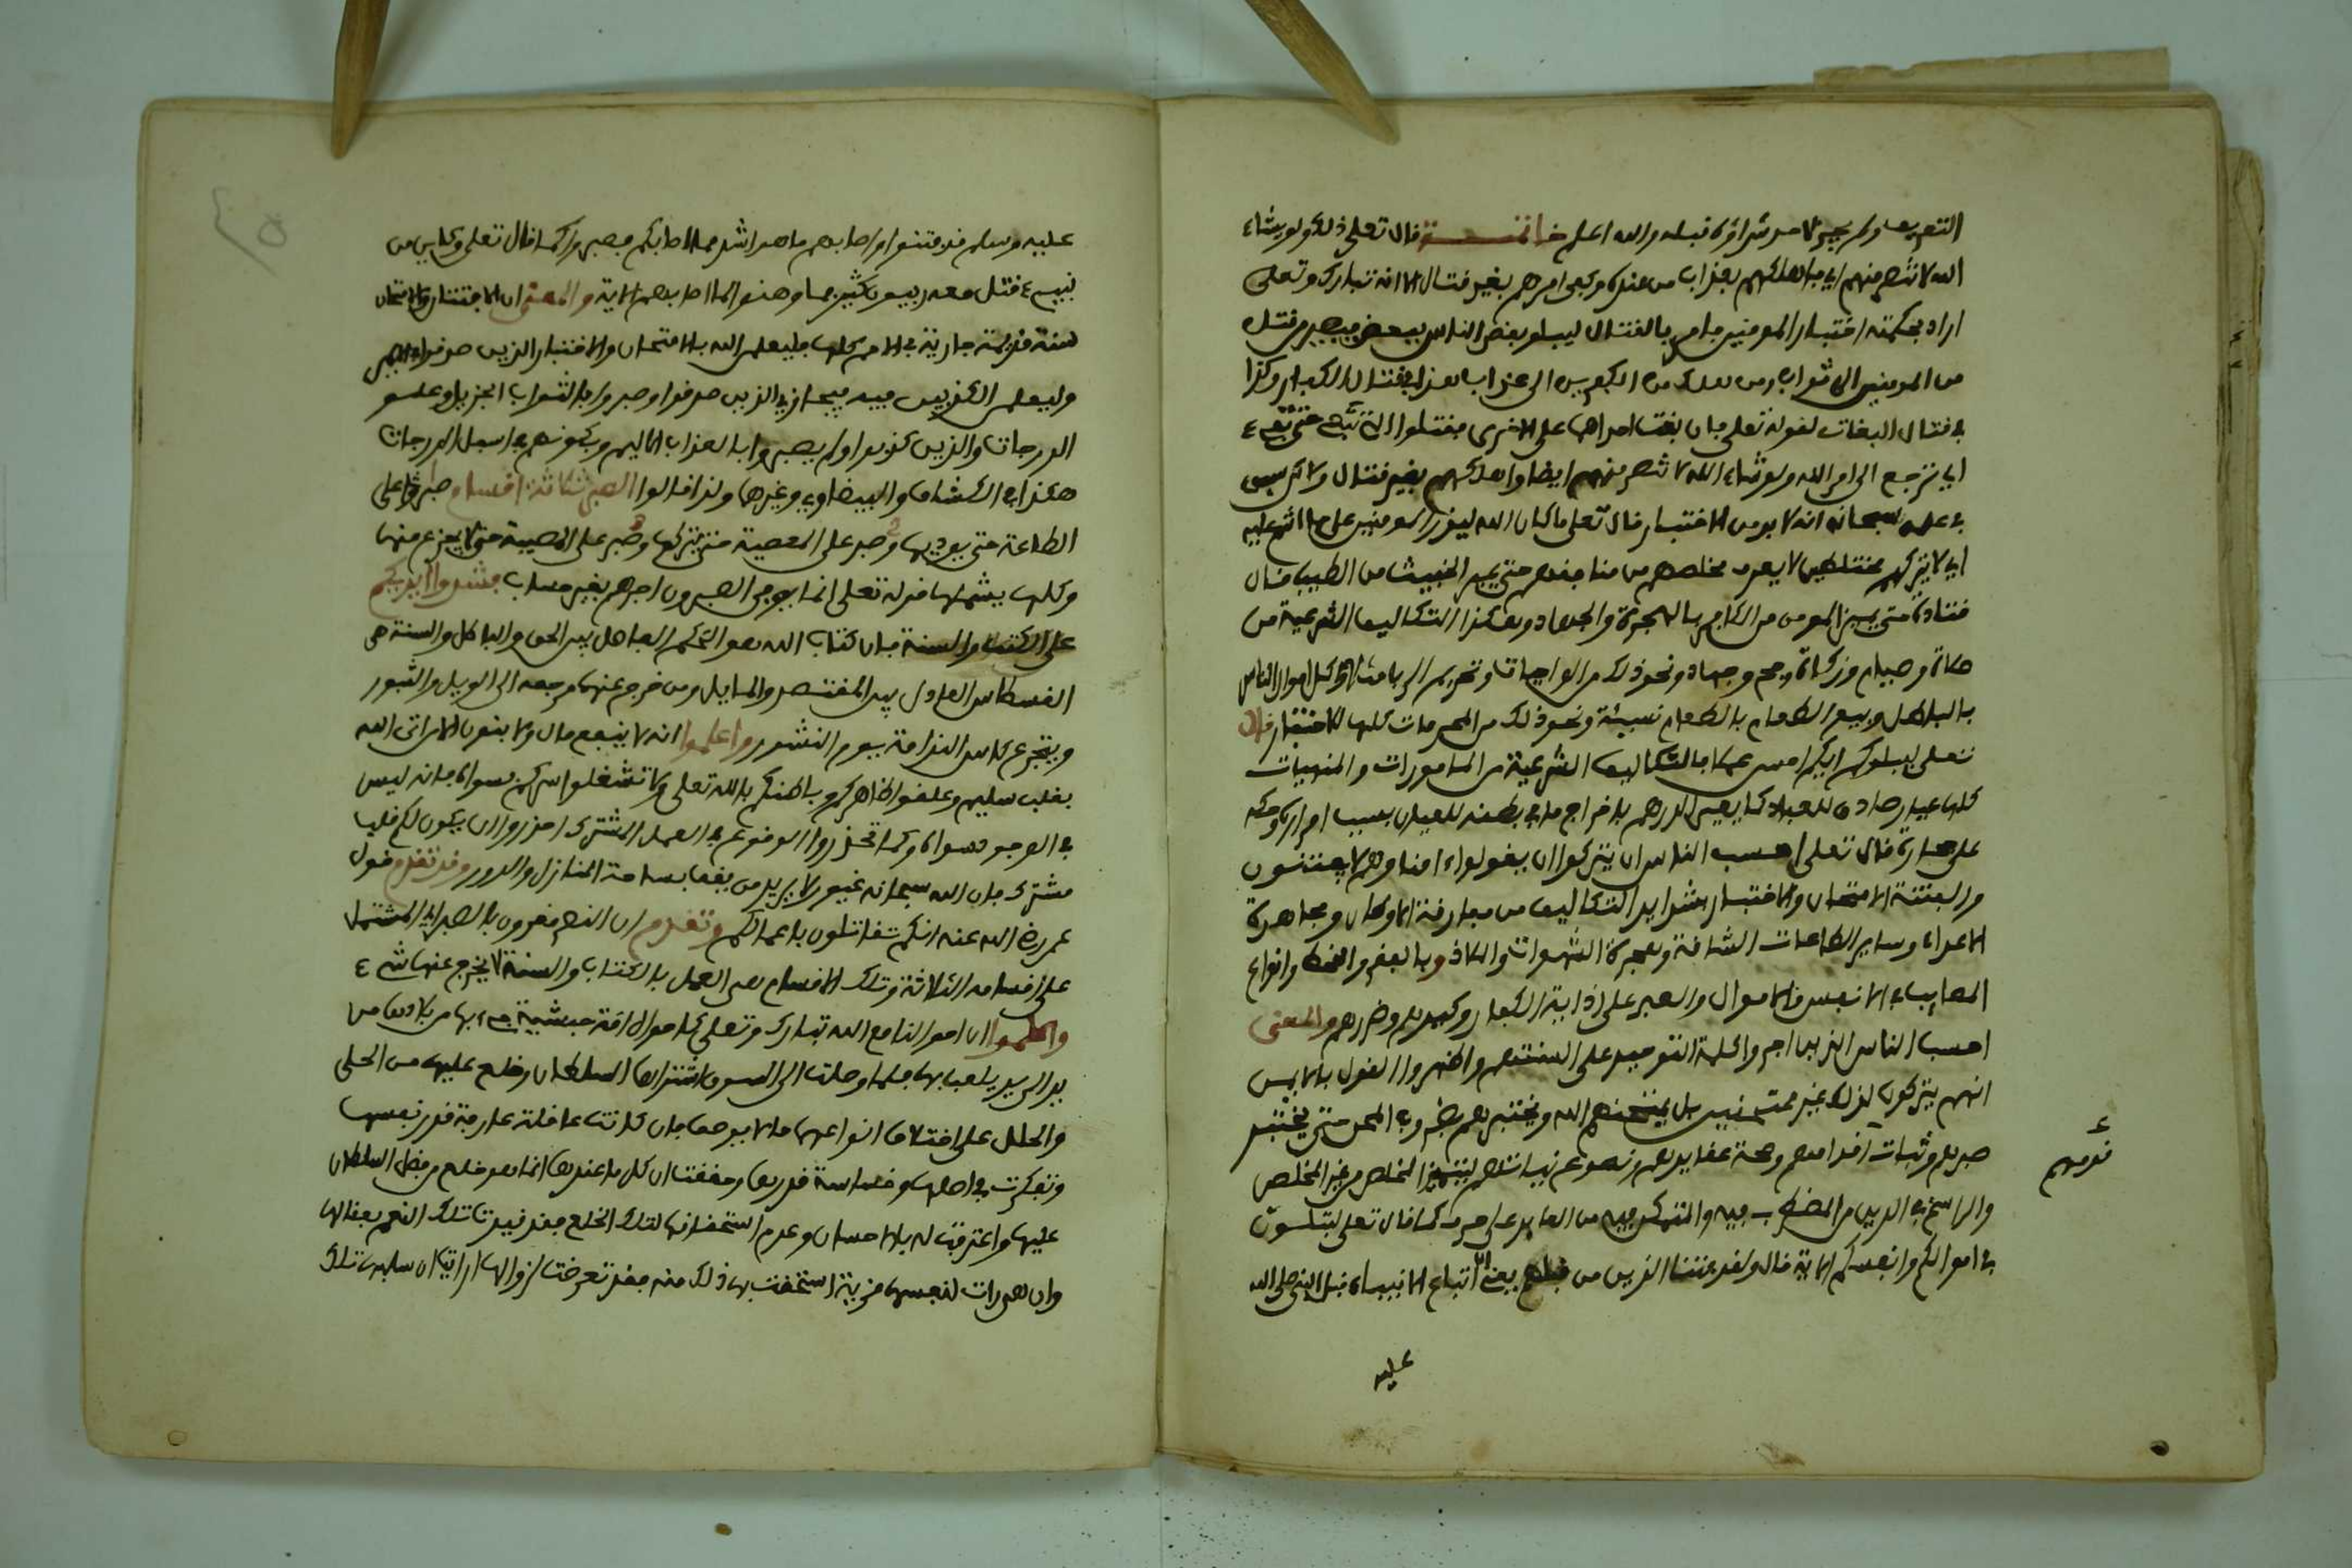 التعريف ولم يجز لاحد شراؤه قبله والله اعلم خاتمـــة قال تعلى ذلك ولو يشاء
الله لانتصر منهم اي باهلاكهم بعذاب من عنده وكفى امرهم بغير قتال الا انه تبارك وتعلى
اراد بحكمته اختبار المومنين بامره بالقتال ليبلو بعض الناس ببعض فيصير من قتل
من المومنين الى ثوابه ومن هلك من الكفرين الى عذابه هذا في قتال الكفار وكذا
في قتال البغات لقوله تعلى فان بغت احداهما على الاخرى فقتلوا التي تبغي حتى تفيء
اي ترجع الى امر الله ولو شاء الله لانتصر منهم ايضا واهلكهم بغير قتال ولاكن سبق
في علمه سبحانه انه لا بد من الاختبار قال تعلى ما كان الله ليذر المومنين على ما انتم عليه
اي لا يترككم مختلطين لا يعرف مخلصهم من منافقهم حتى يميز الخبيث من الطيب قال
قتادة حتى يميز المومن من الكافر بالهجرة والجهاد وهكذا التكاليف الشرعية من
صلاة وصيام وزكاة وحج وجهاد ونحو ذلك من الواجبات وتحريم الربا مثلا واكل اموال الناس
بالباطل وبيع الطعام بالطعام نسيئة ونحو ذلك من المحرمات كلها للاختبار قال
تعلى ليبلوكم ايكم احسن عملا فالتكاليف الشرعية من المامورات والمنهيات
كلها عيار صادق للعباد كما يعير الدرهم باخراج ما في بطنه للعيان بسبب امراره وحكه
على حجارة قال تعلى احسب الناس ان يتركوا ان يقولوا ءامنا وهم لا يفتنون
والفتنة الامتحان والاختبار بشدايد التكاليف من مفارقة الاوطان ومجاهدة
الاعداء وساير الطاعات الشاقة وهجرة الشهوات والملاذ وبالفقر والقحط وانواع
المصايب في الانفس والاموال والصبر على اذاية الكفار وكيدهم وضررهم والمعنى
احسب الناس الذين اجروا كلمة التوحيد على السنتهم واظهروا القول بالايمن
انهم يتركون لذلك غير ممتحنين بل يمتحنهم الله ويختبرهم بضروب المحن حتى يختبر
صبرهم وثبات اقدامهم وصحة عقايدهم ونصوع نياتهم ليتميز المخلص من غير المخلص
والراسخ في الدين من المضطرب فيه والمتمكن فيه من العابد على حرف كما قال تعلى لتبلون
في اموالكم وانفسكم الاية قال ولقد فتنا الذين من قبلهم يعني اتباع الانبياء قبل النبي صلى الله
قومهم
عليه
عليه وسلم قد فتنوا واصابهم ما هو اشد مما اصابكم فصبروا كما قال تعلى وكاين من
نبيء قتل معه ربيون كثير فما وهنوا لما اصابهم الاية والمعنى ان الافتتان والامتحان
سنة قديمة جارية في الامم كلها فليعلمن الله بالامتحان والاختبار الذين صدقوا في الايمن
وليعلمن الكذبين فيه فيجازي الذين صدقوا وصبروا بالثواب الجزيل وعلو
الدرجات والذين كذبوا ولم يصبروا بالعذاب الاليم وبكونهم في اسفل الدرجات
هكذا في الكشاف والبيضاوي وغيرها ولذا قالوا الصبر ثلاثة اقسام صبر على
الطاعة حتى يوديها وصبر على المعصية حتى يتركها وصبر على المصيبة حتى لا يجزع منها
وكلها يشملها قوله تعلى انما يوفى الصبرون اجرهم بغير حساب فشدوا ايديكم
على الكتاب والسنة فان كتاب الله هو الحكم الفاصل بين الحق والباطل والسنة هي
القسطاس العادل بين المقتصد والمايل ومن خرج عنهما مرجعه الى الويل والثبور
ويتجرع كاس الندامة يوم النشور واعلموا انه لا ينفع مال ولا بنون الا من اتى الله
بقلب سليم وعلقوا ظاهركم وباطنكم بالله تعلى ولا تشغلوا سركم بسواه فانه ليس
في الوجود سواه وكما تحذروا الوقوع في العمل المشترك احذروا ان يكون لكم قلب
مشترك فان الله سبحانه غيور لا يريد من يقف بساحة المنازل والدور وقد تقدم قول
عمر رضي الله عنه انكم تقاتلون باعمالكم وتقدم ان النصر مقرون بالصبر اي المشتمل
على اقسامه الثلاثة وتلك الاقسام هي العمل بالكتاب والسنة لا يخرج عنها شيء
واعلموا ان احوالنا مع الله تبارك وتعلى كاحوال امة حبشية جيء بها من بلادها من
يد الى يد يلعب بها فلما وصلت الى السوق اشتراها السلطان وخلع عليها من الحلى
والحلل على اختلاف انواعهما ما لا يوصف فان كانت عاقلة عارفة قدر نفسها
وتفكرت في اصلها وخساسة قدرها وحققت ان كل ما عندها انما هو خلع من فضل السلطان
عليها واعترفت له بالاحسان وعدم استحقاقها لتلك الخلع فقد قيدت تلك النعم بعقالها
وان هي رات لنفسها مزية استحقت بها ذلك منه فقد تعرضت لزوالها ارايت ان سلبها تلك